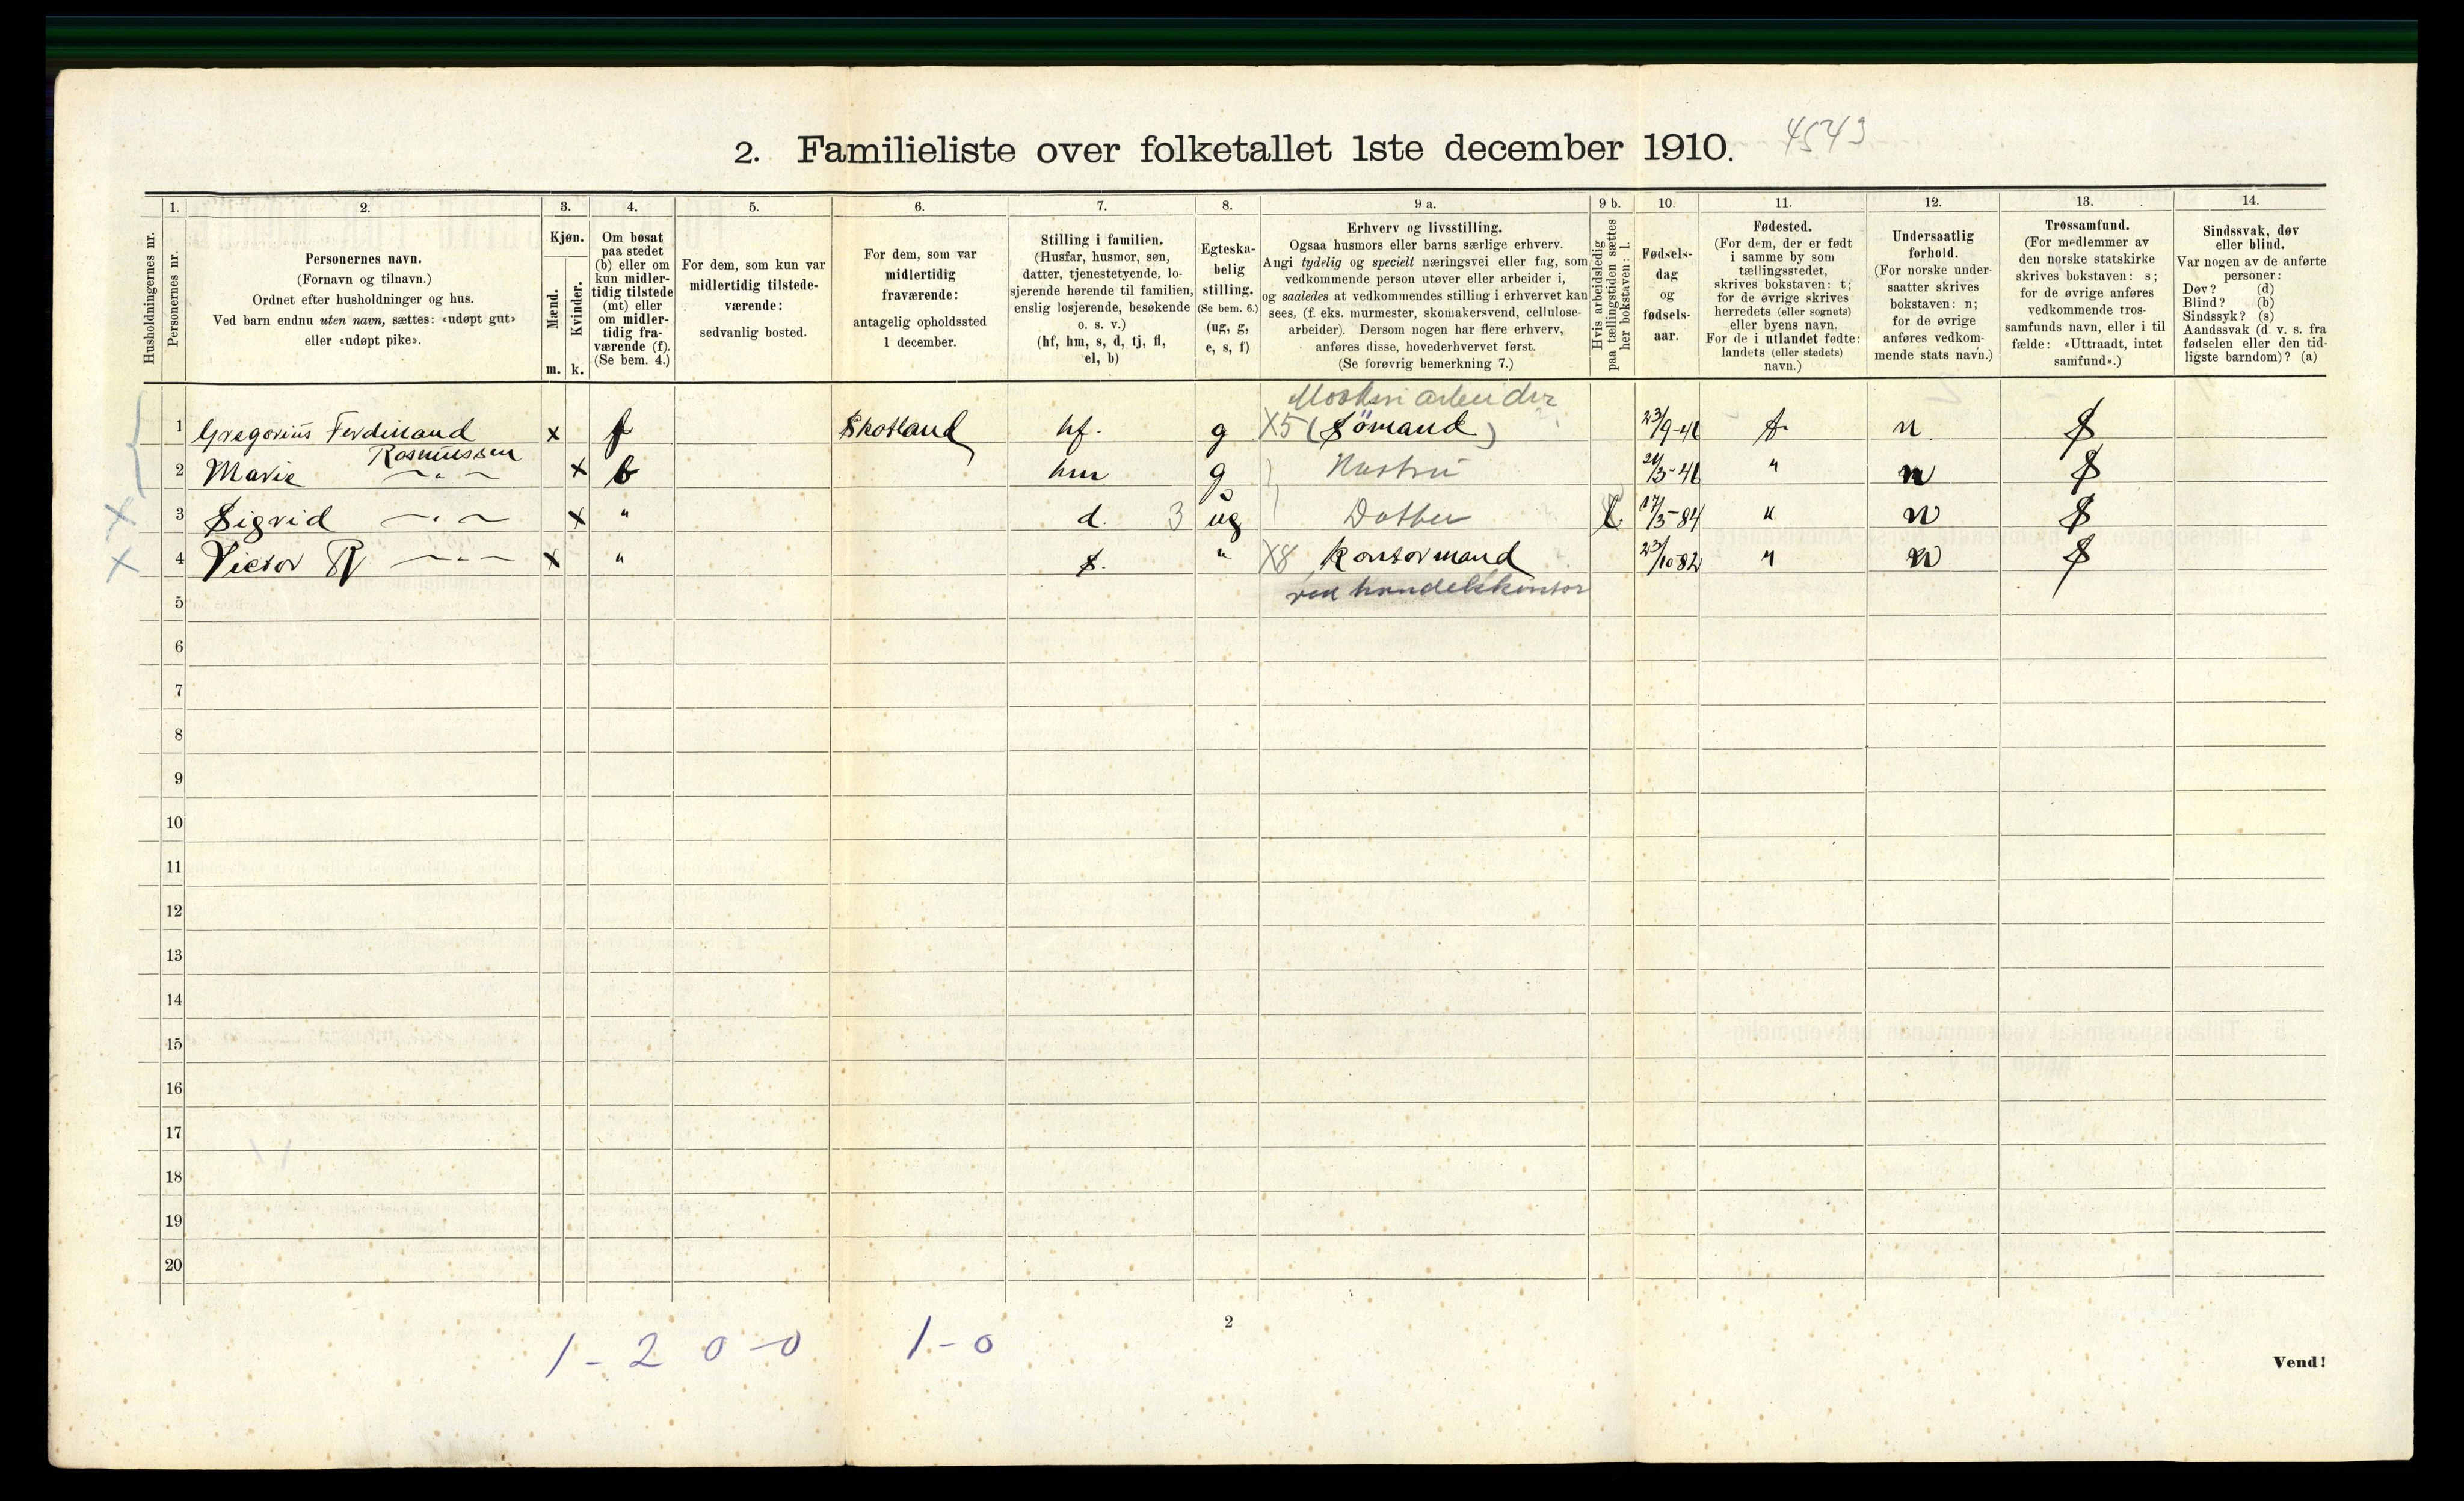 2. Familieliste over folketallet 1ste december 1910. 4543
1. 2. 3. 4. 5. 6. 7. 8. 9 a. 9 b. 10. 11. 12. 13. 14.
Husholdningernes nr.
Personernes nr.
Personernes navn.
(Fornavn og tilnavn.)
Ordnet efter husholdninger og hus.
Ved barn endnu uten navn, sættes: «udøpt gut»
eller «udøpt pike».
Kjøn.
Mænd.
Kvinder.
m. k.
Om bosat
paa stedet
(b) eller om
kun midler-
tidig tilstede
(mt) eller
om midler-
tidig fra-
værende (f).
(Se bem. 4.)
For dem, som kun var
midlertidig tilstede-
værende:
sedvanlig bosted.
For dem, som var
midlertidig
fraværende:
antagelig opholdssted
1 december.
Stilling i familien.
(Husfar, husmor, søn,
datter, tjenestetyende, lo-
sjerende hørende til familien,
enslig losjerende, besøkende
o. s. v.)
(hf, hm, s, d, tj, fl,
el, b)
Egteska-
belig
stilling.
(Se bem. 6.)
(ug, g,
e, s, f)
Erhverv og livsstilling.
Ogsaa husmors eller barns særlige erhverv.
Angi tydelig og specielt næringsvei eller fag, som
vedkommende person utøver eller arbeider i,
og saaledes at vedkommendes stilling i erhvervet kan
sees, (f. eks. murmester, skomakersvend, cellulose-
arbeider). Dersom nogen har flere erhverv,
anføres disse, hovederhvervet først.
(Se forøvrig bemerkning 7.)
Hvis arbeidsledig
paa tællingstiden sættes
her bokstaven: l.
Fødsels-
dag
og
fødsels-
aar.
Fødested.
(For dem, der er født
i samme by som
tællingsstedet,
skrives bokstaven: t;
for de øvrige skrives
herredets (eller sognets)
eller byens navn.
For de i utlandet fødte:
landets (eller stedets)
navn.)
Undersaatlig
forhold.
(For norske under-
saatter skrives
bokstaven: n;
for de øvrige
anføres vedkom-
mende stats navn.)
Trossamfund.
(For medlemmer av
den norske statskirke
skrives bokstaven: s;
for de øvrige anføres
vedkommende tros-
samfunds navn, eller i til
fælde: «Uttraadt, intet
samfund».)
Sindssvak, døv
eller blind.
Var nogen av de anførte
personer:
Døv? (d)
Blind? (b)
Sindssyk? (s)
Aandssvak (d. v. s. fra
fødselen eller den tid-
ligste barndom)? (a)
arbeider
1 Gregorius Ferdinand x f Skotland hf. g X5 (Sömand) 23/9-46 t. n. S
Rasmussen
2 Marie 〃 x b hm g Hustru 21/3-46 " n S
3 Sigrid 〃 x " d. 3 ug Datter l. 17/3-84 " n S
4 Victor R 〃 x " s. " X8 Kontormand 23/10-82 " n S
5 ved handelskontor
6
7
8
9
10
11
12
13
14
15
16
17
18
19
20
1 - 2 0 - 0 1 - 0
2
Vend!